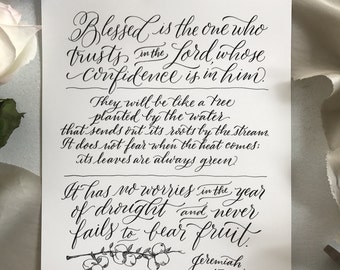 Blessed is the one who
trusts in the Lord, whose
confidence is in him.
They will be like a tree
planted by the water
that sends out its roots by the stream.
It does not fear when the heat comes;
its leaves are always green.
It has no worries in the year
of drought and never
fails to bear fruit.
Jeremiah